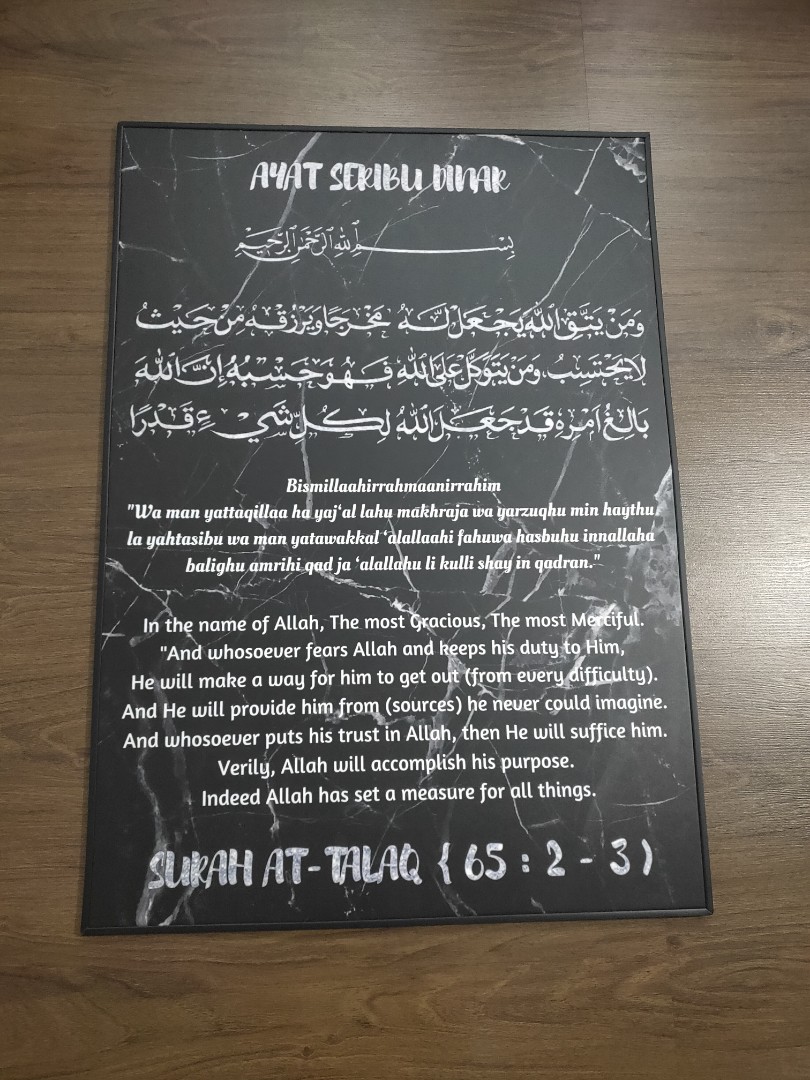 AYAT SERIBU DINAR
بِسْــــــمِ ٱللَّهِ ٱلرَّحْمَٰنِ ٱلرَّحِيمِ
وَمَنْ يَتَّقِ اللَّهَ يَجْعَلْ لَهُ مَخْرَجًا وَيَرْزُقْهُ مِنْ حَيْثُ
لَا يَحْتَسِبُ، وَمَنْ يَتَوَكَّلْ عَلَى اللَّهِ فَهُوَ حَسْبُهُ إِنَّ اللَّهَ
بَالِغُ أَمْرِهِ قَدْ جَعَلَ اللَّهُ لِكُلِّ شَيْءٍ قَدْرًا
Bismillaahirrahmaanirrahim
"Wa man yattaqillaa ha yaj‘al lahu makhraja wa yarzuqhu min haythu
la yahtasibu wa man yatawakkal ‘alallaahi fahuwa hasbuhu innallaha
balighu amrihi qad ja ‘alallahu li kulli shay in qadran."
In the name of Allah, The most Gracious, The most Merciful.
"And whosoever fears Allah and keeps his duty to Him,
He will make a way for him to get out (from every difficulty).
And He will provide him from (sources) he never could imagine.
And whosoever puts his trust in Allah, then He will suffice him.
Verily, Allah will accomplish his purpose.
Indeed Allah has set a measure for all things.
SURAH AT-TALAQ { 65 : 2 - 3 )